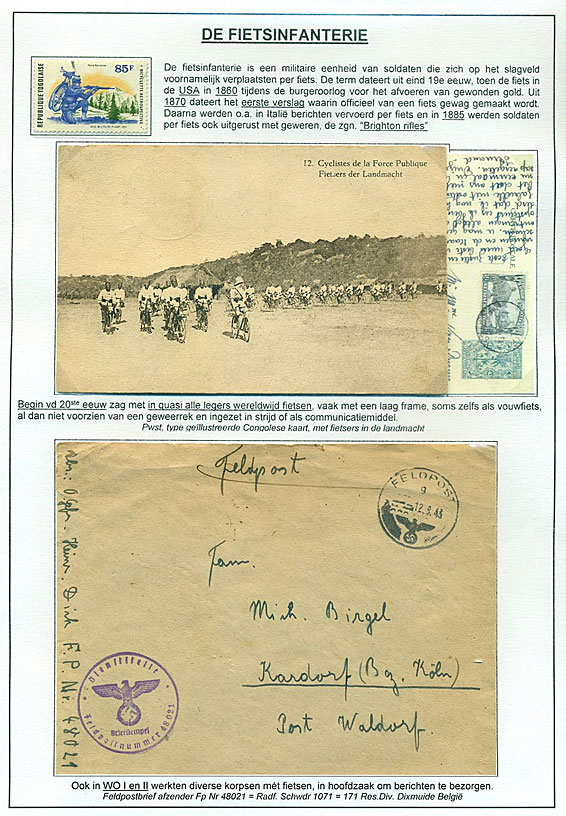 DE FIETSINFANTERIE
REPUBLIQUE TOGOLAISE
85F
De fietsinfanterie is een militaire eenheid van soldaten die zich op het slagveld
voornamelijk verplaatsten per fiets. De term dateert uit eind 19e eeuw, toen de fiets in
de USA in 1860 tijdens de burgeroorlog voor het afvoeren van gewonden gold. Uit
1870 dateert het eerste verslag waarin officieel van een fiets gewag gemaakt wordt.
Daarna werden o.a. in Italië berichten vervoerd per fiets en in 1885 werden soldaten
per fiets ook uitgerust met geweren, de zgn. "Brighton rifles"
12. Cyclistes de la Force Publique
Fietsers der Landmacht
Begin vd 20ste eeuw zag met in quasi alle legers wereldwijd fietsen, vaak met een laag frame, soms zelfs als vouwfiets,
al dan niet voorzien van een geweerrek en ingezet in strijd of als communicatiemiddel.
Pwst, type geïllustreerde Congolese kaart, met fietsers in de landmacht
Feldpost
FELDPOST
g
12.8.43
Fam.
Mich. Birgel
Kardorf (Bez. Köln)
Post Waldorf.
F. P. Nr. 48021
Dienststelle
Feldpostnummer 48021
Briefstempel
Ook in WO I en II werkten diverse korpsen mét fietsen, in hoofdzaak om berichten te bezorgen.
Feldpostbrief afzender Fp Nr 48021 = Radf. Schwdr 1071 = 171 Res.Div. Dixmuide België